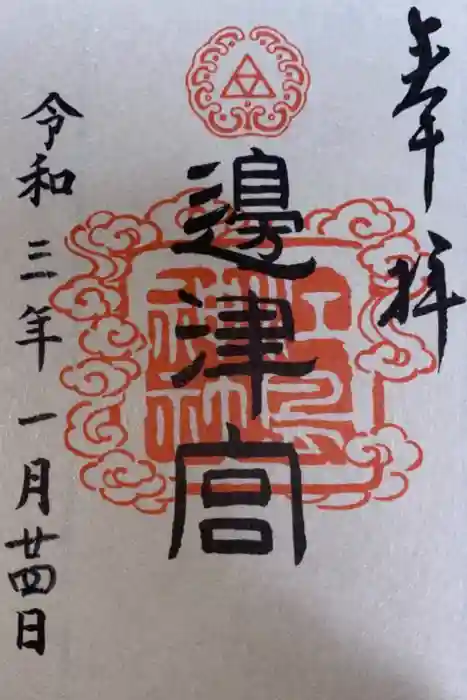 奉拝
邊津宮
令和三年一月廿四日